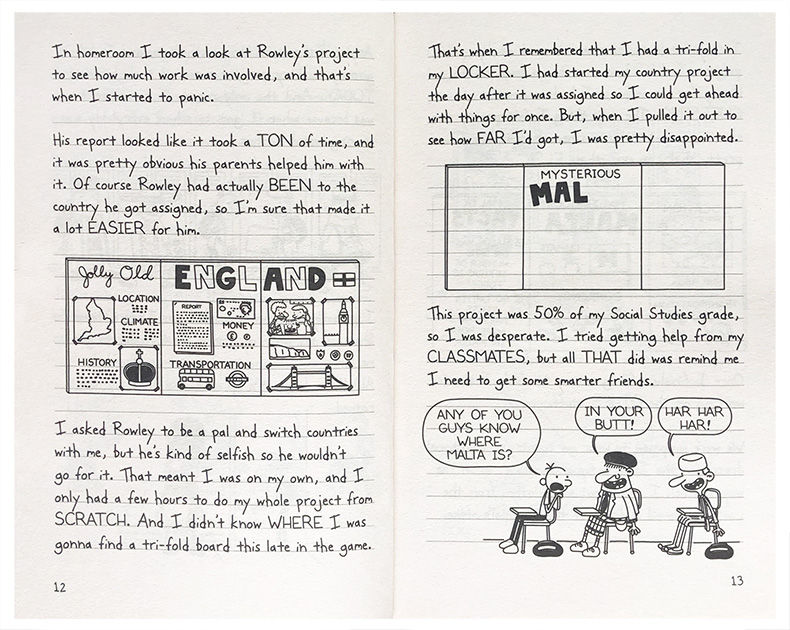 In homeroom I took a look at Rowley's project
to see how much work was involved, and that's
when I started to panic.
His report looked like it took a TON of time, and
it was pretty obvious his parents helped him with
it. Of course Rowley had actually BEEN to the
country he got assigned, so I'm sure that made it
a lot EASIER for him.
Jolly Old ENGLAND
LOCATION
CLIMATE
HISTORY
REPORT
MONEY
TRANSPORTATION
I asked Rowley to be a pal and switch countries
with me, but he's kind of selfish so he wouldn't
go for it. That meant I was on my own, and I
only had a few hours to do my whole project from
SCRATCH. And I didn't know WHERE I was
gonna find a tri-fold board this late in the game.
12
That's when I remembered that I had a tri-fold in
my LOCKER. I had started my country project
the day after it was assigned so I could get ahead
with things for once. But, when I pulled it out to
see how FAR I'd got, I was pretty disappointed.
MYSTERIOUS
MAL
This project was 50% of my Social Studies grade,
so I was desperate. I tried getting help from my
CLASSMATES, but all THAT did was remind me
I need to get some smarter friends.
ANY OF YOU
GUYS KNOW
WHERE
MALTA IS?
IN YOUR
BUTT!
HAR HAR
HAR!
13